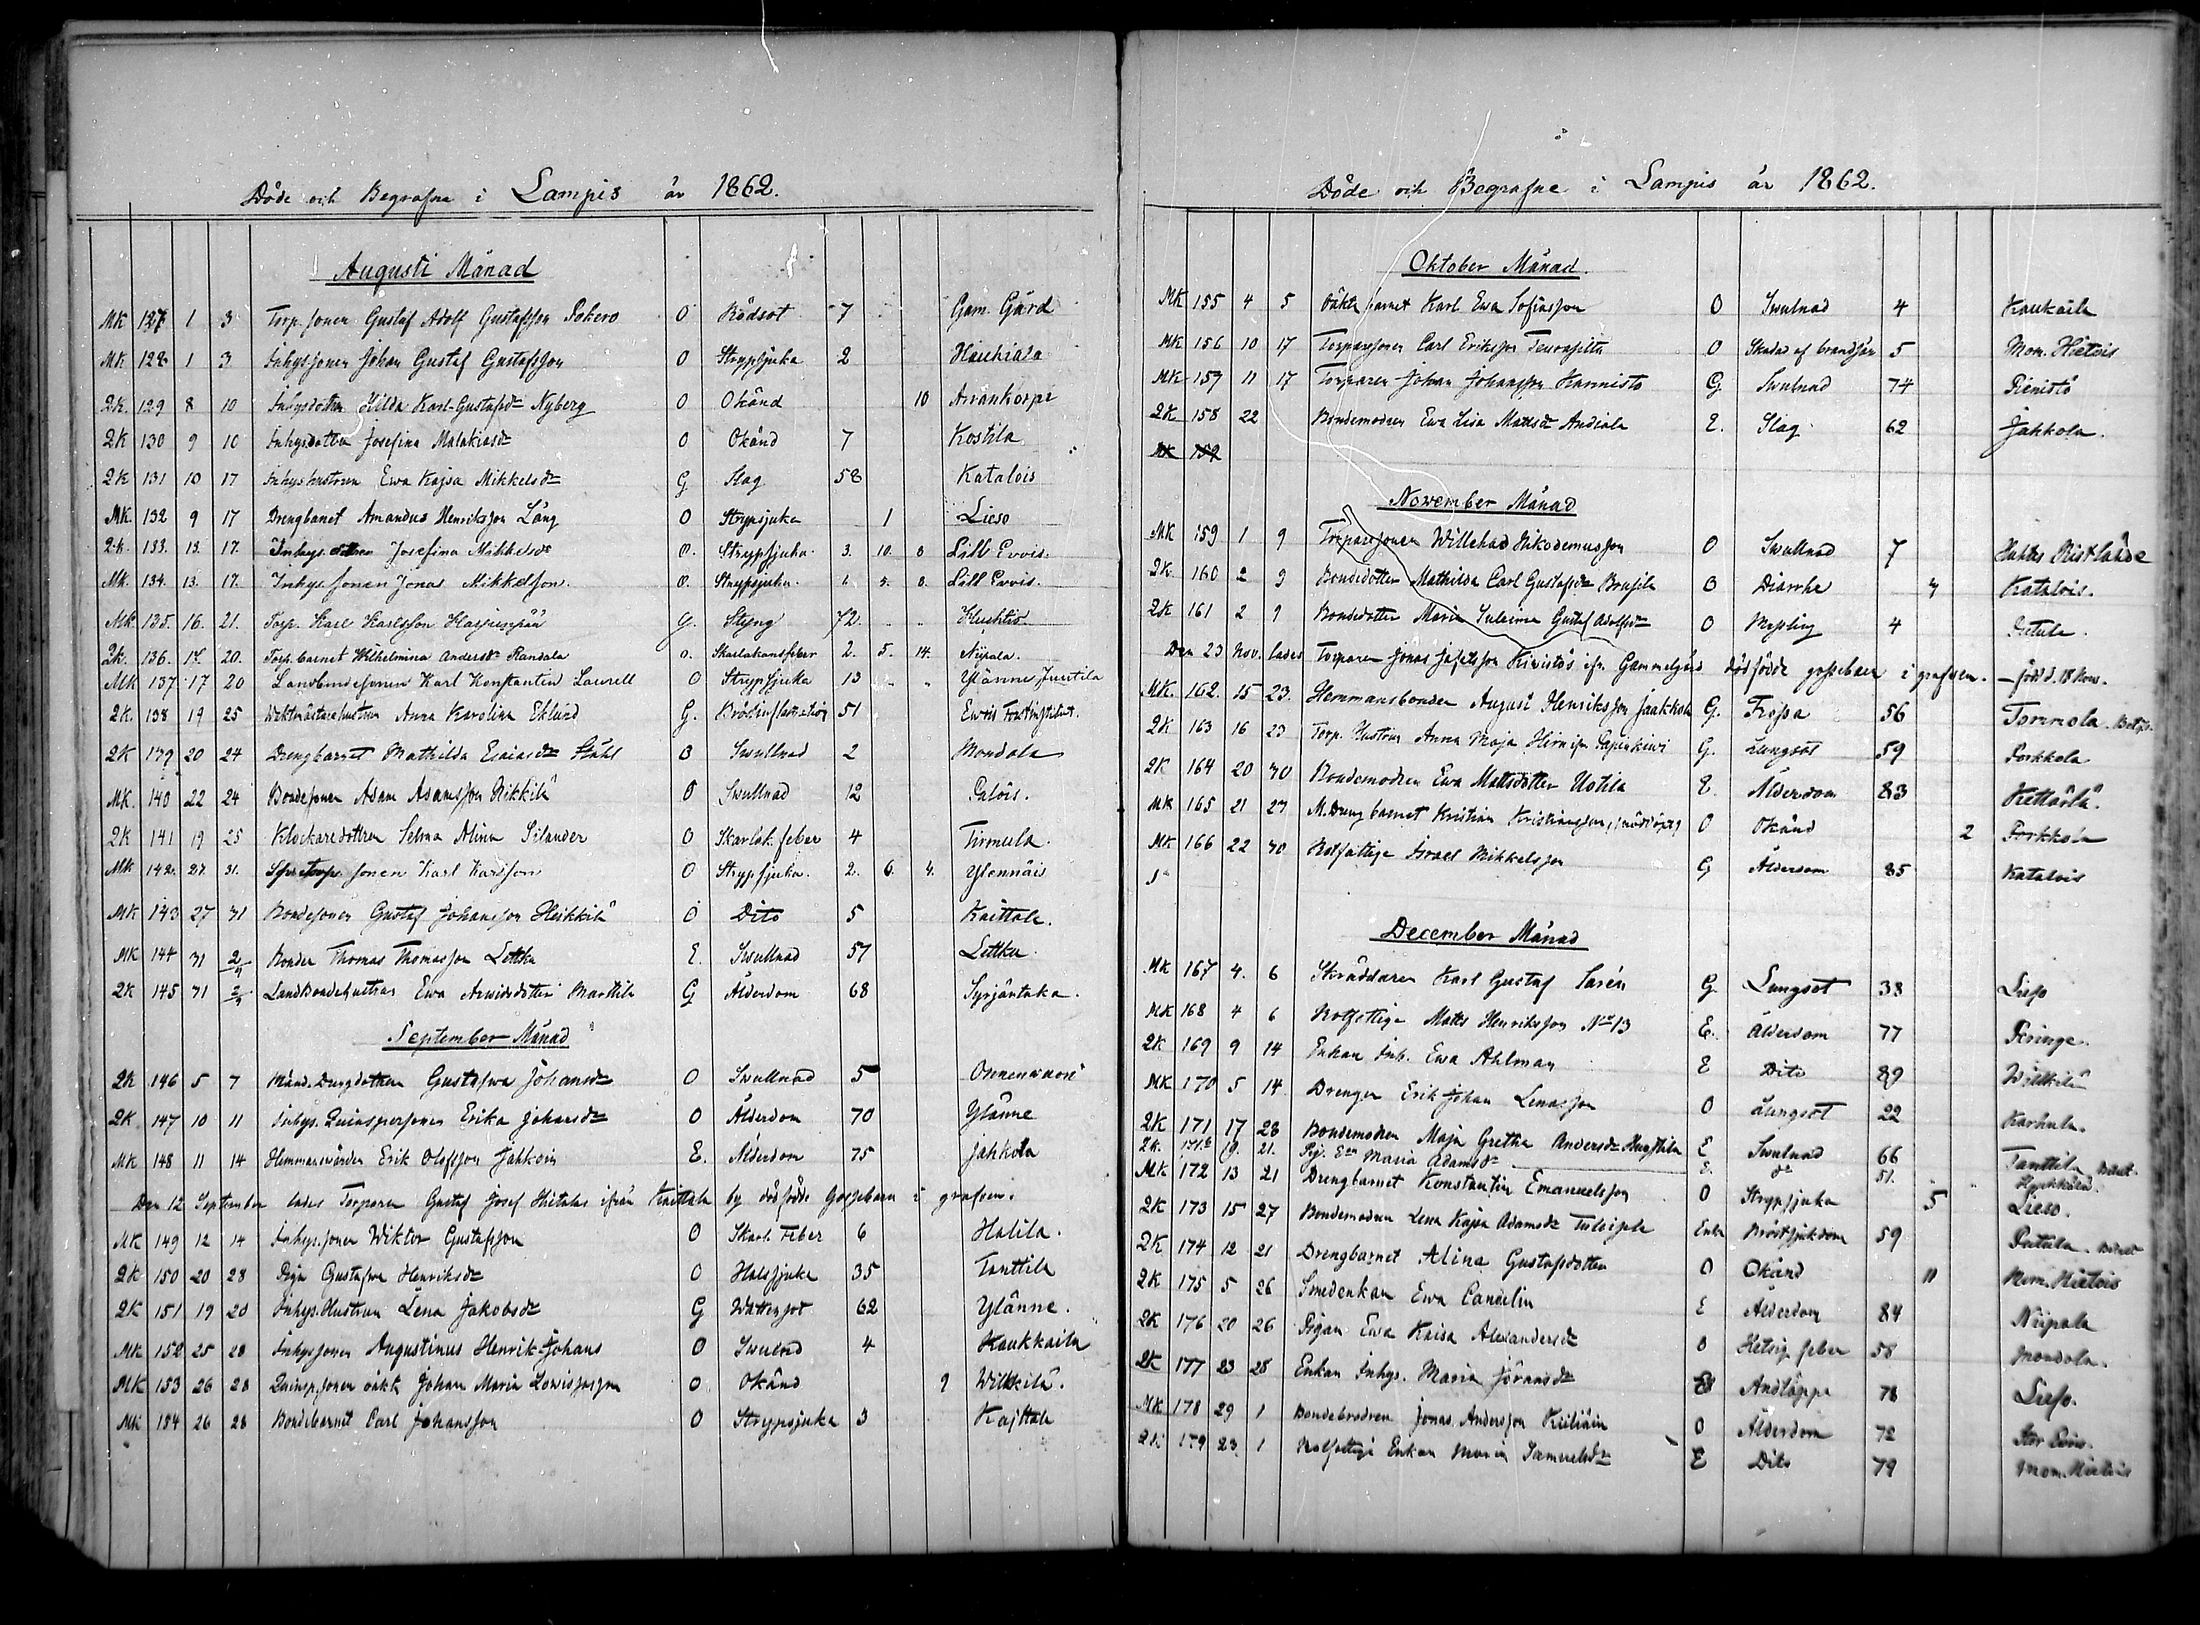 Döde och Begrafne i Lampis år 1862.
Augusti Månad
MK 127 1 3 Torp. sonen Gustaf Adolf Gustafsson Sokero O Rödsot 7 Gam. Gård
MK 128 1 3 Inhysesonen Johan Gustaf Gustafsson O Strypsjuka 2 Hauhiala
QK. 129 8 10 Inhysdottren Hilda Karl-Gustafsdr Nyberg O Okänd 10
QK 130 9 10 Inhysdotter Josefina Malakiasdr O Okänd 7 Kostila
QK 131 10 17 Inhyshustrun Ewa Kajsa Mikkelsdr G Slag 58 Katalois
MK. 132 9 17 Drengbarnet Amandus Henriksson Lång O Strypsjuka 1 Lieso
QK. 133. 13. 17. Inhys. dottren Josefina Mikkelsdr O. Strypsjuka. 3. 10. 8 Lill Evois.
MK. 134. 13. 17. Inhys sonen Jonas Mikkelsson. O. Strypsjuka. 1. 2. 8. Lill Evois.
MK. 135. 16. 21. Torp. Karl Karlsson G. Styng 72.
QK. 136. 17. 20. Torp. barnet Wilhelmina Andersdr Randala O. Skarlakansfeber 2. 5. 14. Nipala.
MK 137 17 20 Landbondesonen Karl Konstantin Laurell O Strypsjuka 13 Ylänne Juutila
QK. 138 19 25 Anna Karolina Eklund G. 51 Evois
QK 139 20 24 Drengbarnet Mathilda Esaiasdr Ståhl O Swullnad 2 Mondala
MK. 140 22 24 Bondesonen Adam Adamsson Heikkilä O Swullnad 12 Palois.
QK 141 19 25 Klockaredottren Selma Alina Silander O Skarlak. feber 4 Tirmula.
MK 142. 27. 31. sonen Karl Karlsson O Strypsjuka. 2. 6. 4. Ylennäis
MK 143 27 31 Bondesonen Gustaf Johansson Heikkilä O Dito 5 Kaittala.
MK 144 31 2/9 Bonden Thomas Thomasson Lettku E. Swullnad 57 Lettku.
QK 145 31 2/9 Landbondehustrun Ewa Arwidsdotter Marttila G Ålderdom 68 Syrjäntaka.
September Månad
QK 146 5 7 Gustafwa Johansdr O Swullnad 5
QK. 147 10 11 Inhys. Quinspersonen Erika Johansdr O Ålderdom 70 Ylänne
MK 148 11 14 Erik Olofsson Jahkoin E. Ålderdom 75 Jahkola
Den 12 September lades Torparen Gustaf Josef Hietalas ifrån Kaittala by dödfödde gossebarn i grafven.
MK 149 12 14 Inhys. sonen Wiktor Gustafsson O Skarl. Feber 6 Halila.
QK 150 20 28 Pigan Gustafwa Henriksdr O Halssjuka 35 Tanttila
QK 151 19 20 Inhys. Hustrun Lena Jakobsdr G Wattusot 62 Ylänne.
MK 152 25 28 Inhysesonen Augustinus Henrik Johans O Swulnad 4 Kaukkaila
MK 153 26 28 Quinsp. sonen oäkt. Johan Maria Lowisasson O Okänd 9 Wilkkilä.
MK 154 26 28 Bondebarnet Carl Johansson O Strypsjuka 3 Kajttala
Döde och Begrafne i Lampis år 1862.
Oktober Månad.
MK 155 4 5 Oäkta barnet Karl Ewa Sofiasson O Swulnad 4 Kaukaila
MK 156 10 17 Torparesonen Carl Eriksson O Skadad af brandsår 5 Mom. Hietois
MK 157 11 17 Torparen Johan Johansson Kannisto G. Swulnad 74
QK 158 22 Bondemodren Ewa Lisa Mattsdr Andiala E. Slag 62 Jahkola.
MK 159
November Månad
MK 159 1 9 Torparesonen Willehad Nikodemusson O Swullnad 7
QK 160 2 9 Bondedotter Mathilda Carl Gustafsdr O Diarrhe Katalois.
QK 161 2 9 Bondedotter Maria Gustaf Adolfsdr O Messling 4
Den 23 Nov. lades Torparen Jonas ifr. Gammelgård dödfödde gossebarn i grafven. – född d. 18 Nov.
MK. 162. 15 23. Hemmansbonden August Henriksson Jaakkola G. Frossa 56 Tommola
QK 163 16 23 Torp. Hustrun Anna Maja G. Lungsot 59 Porkkola
QK 164 20 30 Bondemodren Ewa Mattsdotter Uotila E. Ålderdom 83
MK 165 21 23 M. Drengbarnet Kristian Kristiansson, (nöddöpt) O Okänd 2 Porkkola
MK 166 22 30 Rotfattige Israel Mikkelsson G Ålderdom 85 Katalois
December Månad
MK 167 4. 6 Skräddaren Karl Gustaf Sarén G. Lungsot 38 Lieso
MK 168 4 6 Rotfattige Matts Henriksson No 13 E. Ålderdom 77
QK 169 9 14 Enkan Inh. Ewa Ahlman E Dito 89 Wilkkilä
MK 170 5 14 Drengen Erik Johan Lenasson O Lungsot 22 Karhula.
QK 171 17 28 Bondemodren Maja Gretha Andersdr E Swulnad 66 Tanttila
QK. 171.b 19. 21. Maria Adamsdr E. dr 51.
MK 172 13 21 Drengbarnet Konstantin Emanuelsson O Strypsjuka 5 Lieso.
QK 173 15 27 Bondemodren Lena Kajsa Adamsdr Enka Bröstsjukdom 59
QK 174 12 21 Drengbarnet Alina Gustafsdotter O Okänd 11 Mom. Hietois
QK 175 5 26 Smedenkan Ewa Candelin E Ålderdom 84 Nipala
QK 176 20 26 Pigan Ewa Kaisa Alexandersdr O Hetsig feber 58 Mondala.
QK 177 23 28 Enkan Inhys. Maria Göransdr E Andtäppa 78 Lieso.
MK 178 29 1 Bondebrodren Jonas Andersson O Ålderdom 72 Stor Evois.
QK 179 23 1 Rotfattige Enkan Maria Samuelsdr E Dito 79 Mom. Hietois